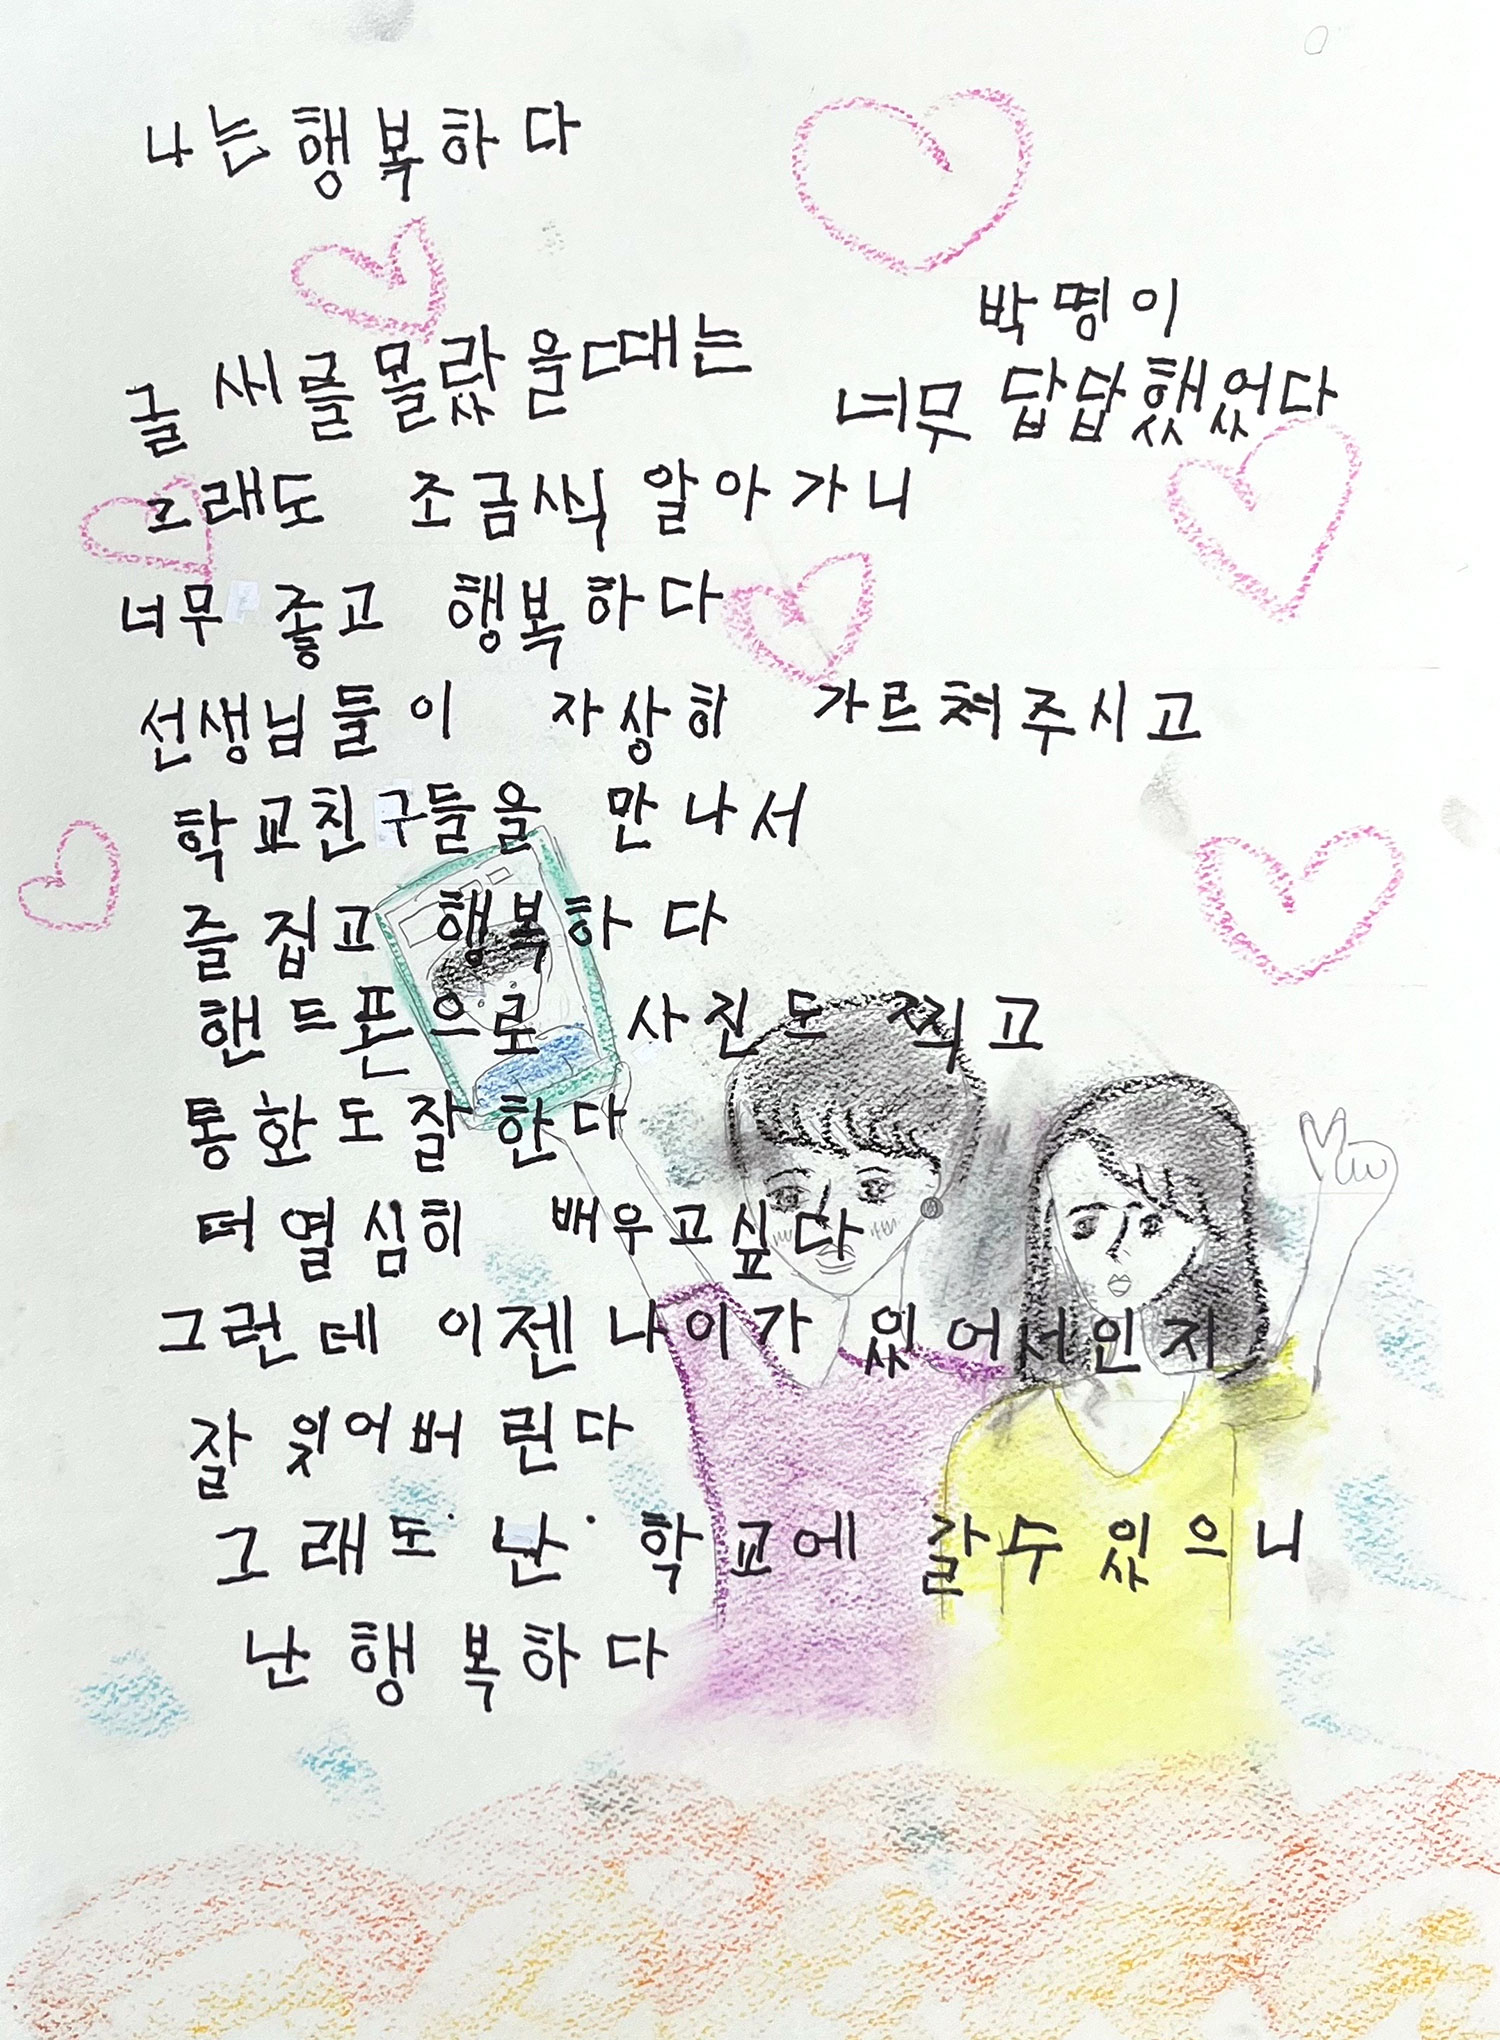 나는 행복하다
박명이
글 새를 몰랐을때는 너무 답답했었다
그래도 조금씩 알아가니
너무 좋고 행복하다
선생님들이 자상히 가르쳐주시고
학교친구들을 만나서
즐겁고 행복하다
핸드폰으로 사진도 찍고
통화도 잘한다
더 열심히 배우고싶다
그런데 이젠 나이가 있어서인지
잘 잊어버린다
그래도 난 학교에 갈수있으니
난 행복하다